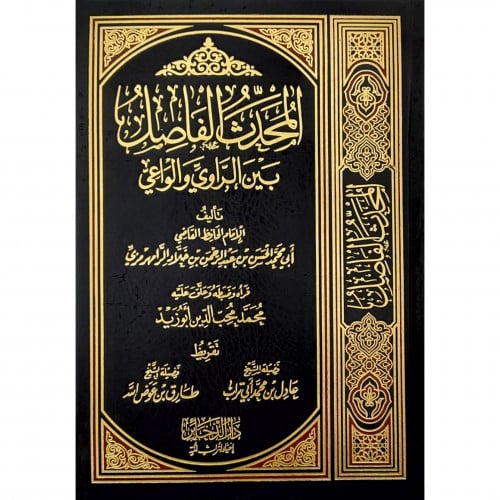 المحدث الفاصل
بين الراوي والواعي
تأليف
الإمام الحافظ القاضي
أبي محمد الحسن بن عبد الرحمن بن خلاد الرامهرمزي
قرأه وضبطه وعلق عليه
محمد محب الدين أبو زيد
تقريظ
فضيلة الشيخ
عادل بن محمد أبي تراب
فضيلة الشيخ
طارق بن عوض الله
المحدث الفاصل